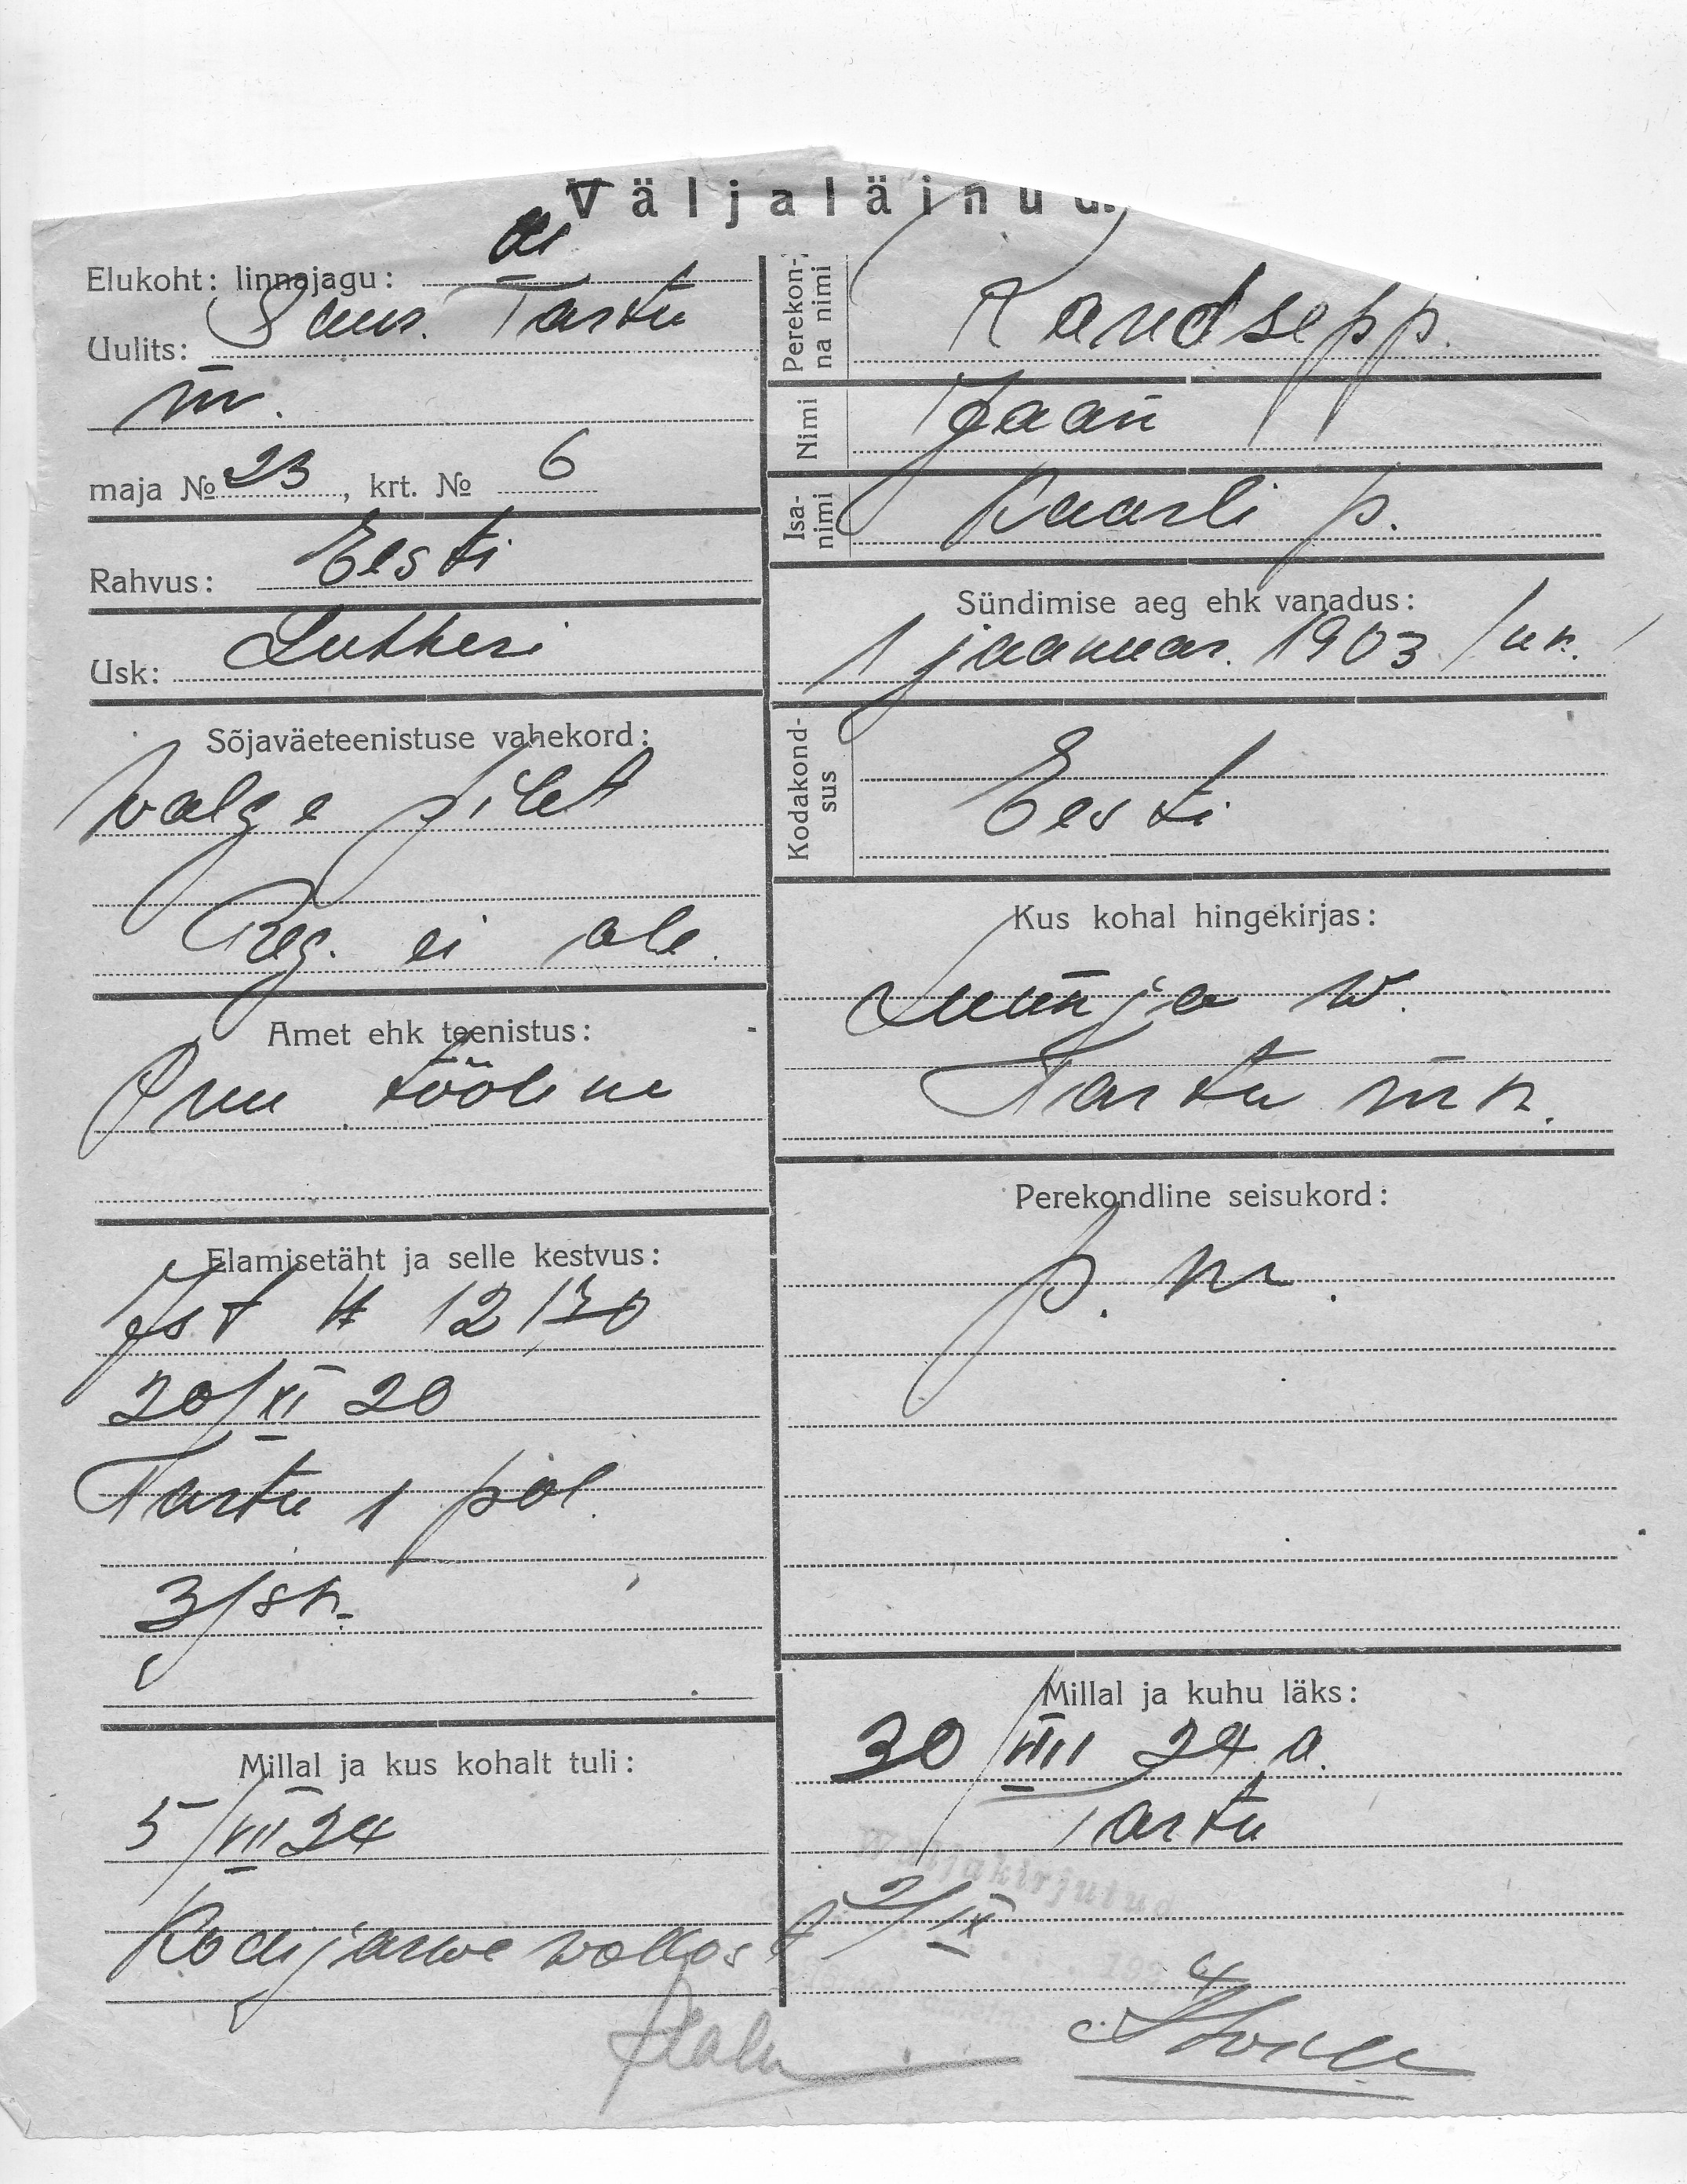 Väljaläinud.
Elukoht: linnajagu: III
Uulits: Suur. Tartu
m.
maja № 23, krt. № 6
Rahvus: Eesti
Usk: Lutheri
Sõjaväeteenistuse vahekord:
valge pilet
Reg. ei ole.
Amet ehk teenistus:
tööline
Elamisetäht ja selle kestvus:
Ist № 12130
20/XI 20
Tartu 1 pol.
3/sk.
Millal ja kus kohalt tuli:
5/VII 24
Kodijärwe wallast
Perekonna nimi
Kandsepp.
Nimi Jaan
Isanimi Kaarli p.
Sündimise aeg ehk vanadus:
1 jaanuar. 1903 /un./
Kodakondsus
Eesti
Kus kohal hingekirjas:
Luunja w.
Tartu mk.
Perekondline seisukord:
p. m.
Millal ja kuhu läks:
30/VIII 24 a.
Tartu
Wäljakirjutud
2/IX
192 4